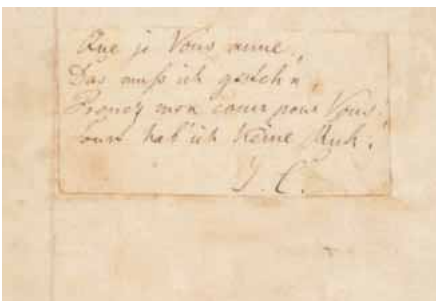 Que je Vous aime,
Das muß ich gesteh'n,
Prenez mon coeur pour Vous,
Sonst hab' ich keine Ruh.
J. C.